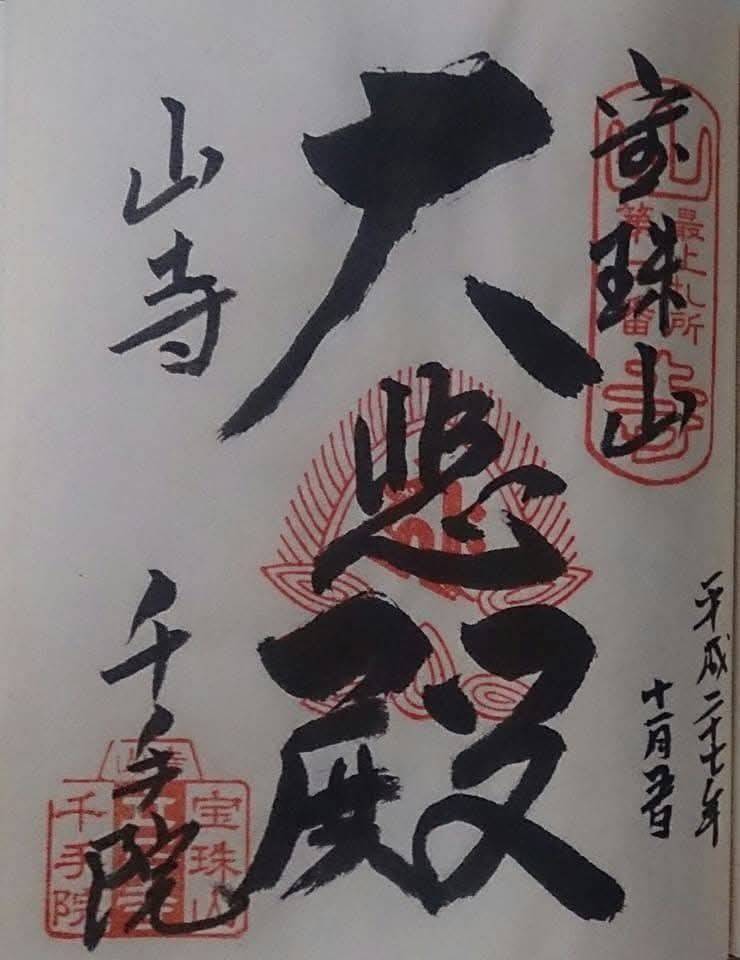 平成二十七年
十一月五日
宝珠山
最上札所
第一番
山寺
大悲殿
山寺
千手院
宝珠山
千手院